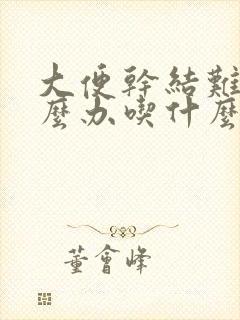 大便幹結難
麼办喫什麼
董會峰